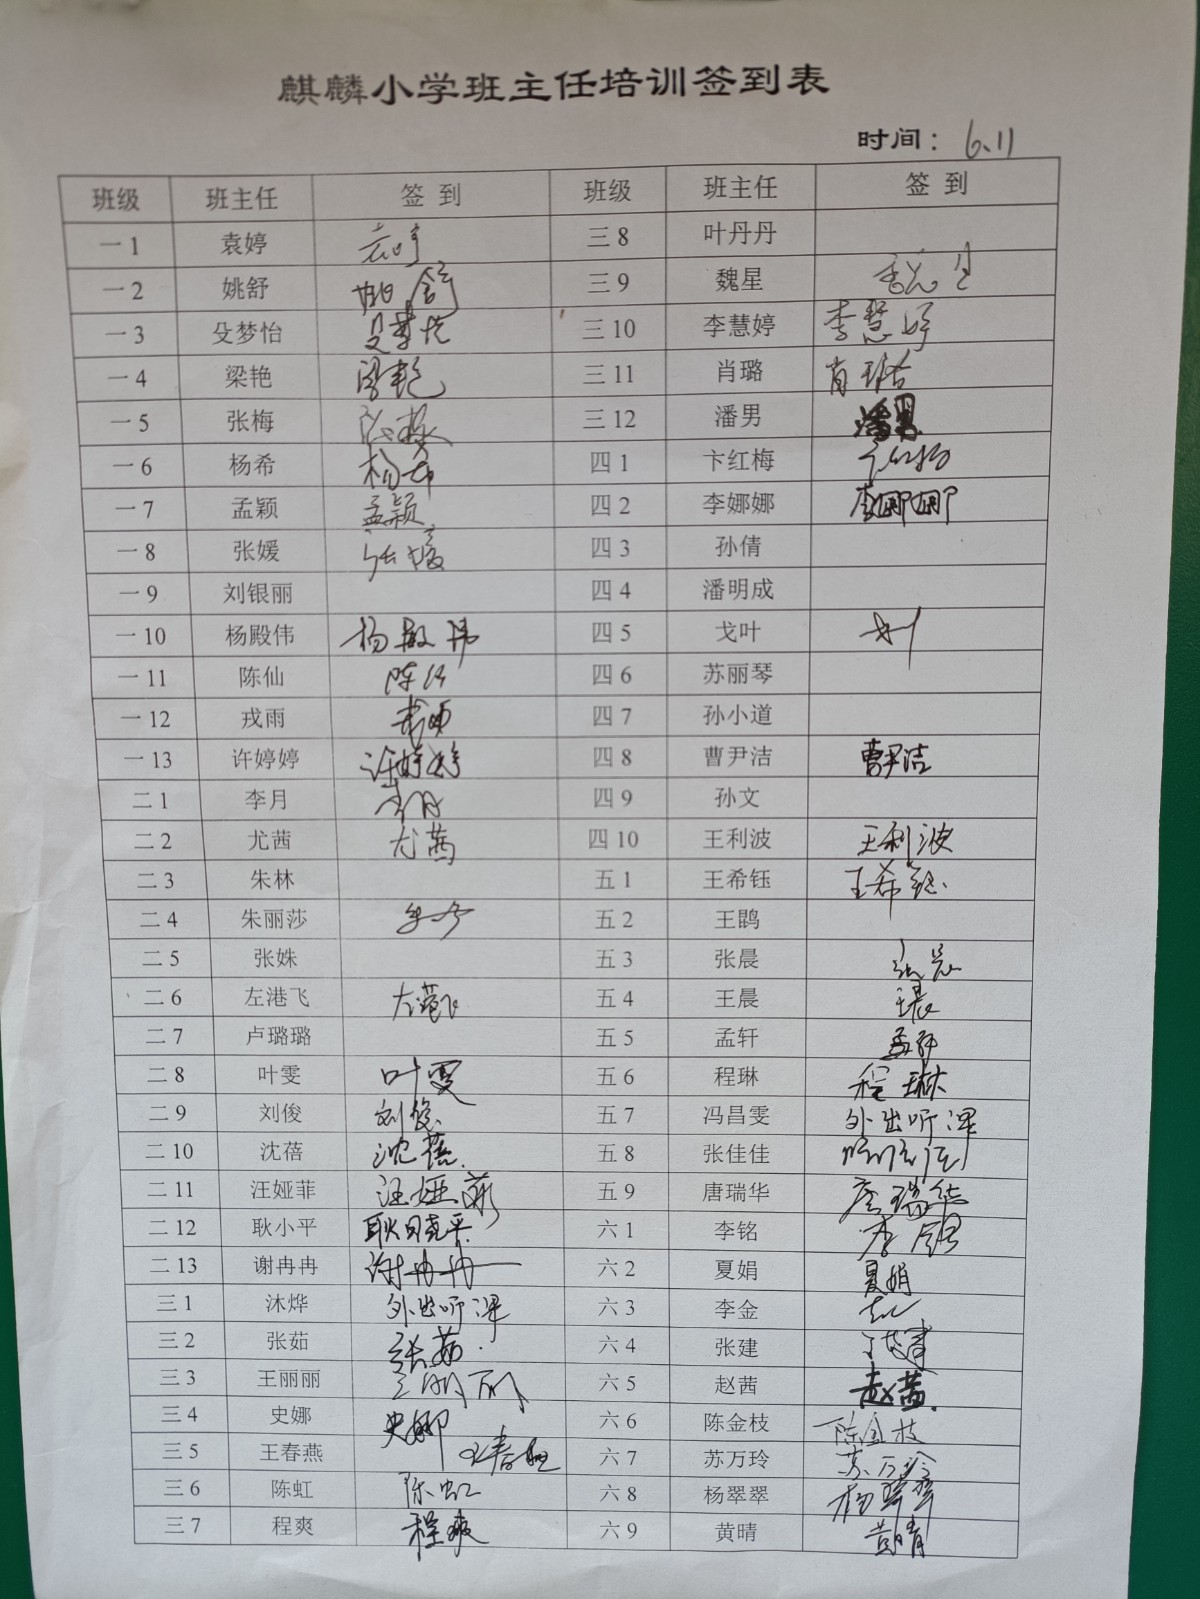 麒麟小学班主任培训签到表
时间：6.11
班级 班主任 签到 班级 班主任 签到
一1 袁婷 袁婷 三8 叶丹丹
一2 姚舒 姚舒 三9 魏星 魏星
一3 殳梦怡 殳梦怡 三10 李慧婷 李慧婷
一4 梁艳 梁艳 三11 肖璐 肖璐
一5 张梅 张梅 三12 潘男 潘男
一6 杨希 杨希 四1 卞红梅 卞红梅
一7 孟颖 孟颖 四2 李娜娜 李娜娜
一8 张媛 张媛 四3 孙倩
一9 刘银丽 四4 潘明成
一10 杨殿伟 杨殿伟 四5 戈叶
一11 陈仙 陈仙 四6 苏丽琴
一12 戎雨 戎雨 四7 孙小道
一13 许婷婷 许婷婷 四8 曹尹洁 曹尹洁
二1 李月 李月 四9 孙文
二2 尤茜 尤茜 四10 王利波 王利波
二3 朱林 五1 王希钰 王希钰
二4 朱丽莎 五2 王鹍
二5 张姝 五3 张晨 张晨
二6 左港飞 左港飞 五4 王晨 王晨
二7 卢璐璐 五5 孟轩 孟轩
二8 叶雯 叶雯 五6 程琳 程琳
二9 刘俊 刘俊 五7 冯昌雯 外出听课
二10 沈蓓 沈蓓 五8 张佳佳 张佳佳
二11 汪娅菲 汪娅菲 五9 唐瑞华 唐瑞华
二12 耿小平 耿小平 六1 李铭 李铭
二13 谢冉冉 谢冉冉 六2 夏娟 夏娟
三1 沐烨 外出听课 六3 李金
三2 张茹 张茹 六4 张建
三3 王丽丽 王丽丽 六5 赵茜 赵茜
三4 史娜 史娜 六6 陈金枝 陈金枝
三5 王春燕 王春燕 六7 苏万玲 苏万玲
三6 陈虹 陈虹 六8 杨翠翠 杨翠翠
三7 程爽 程爽 六9 黄晴 黄晴